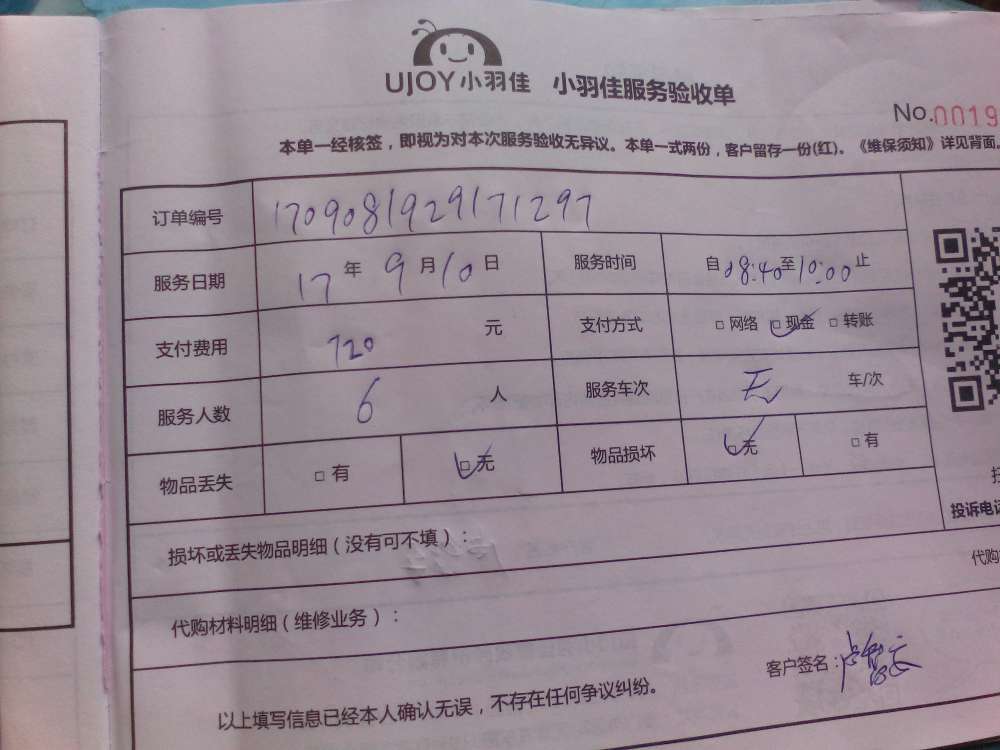 UJOY小羽佳 小羽佳服务验收单
No.0019
本单一经核签，即视为对本次服务验收无异议。本单一式两份，客户留存一份(红)。《维保须知》详见背面。
订单编号 1709081929171297
服务日期 17年9月10日 服务时间 自08:40至10:00止
支付费用 720 元 支付方式 □网络 □现金 □转账
服务人数 6 人 服务车次 无 车/次
物品丢失 □有 □无 物品损坏 □无 □有
投诉电话
损坏或丢失物品明细（没有可不填）：
代购
代购材料明细（维修业务）：
客户签名：
以上填写信息已经本人确认无误，不存在任何争议纠纷。